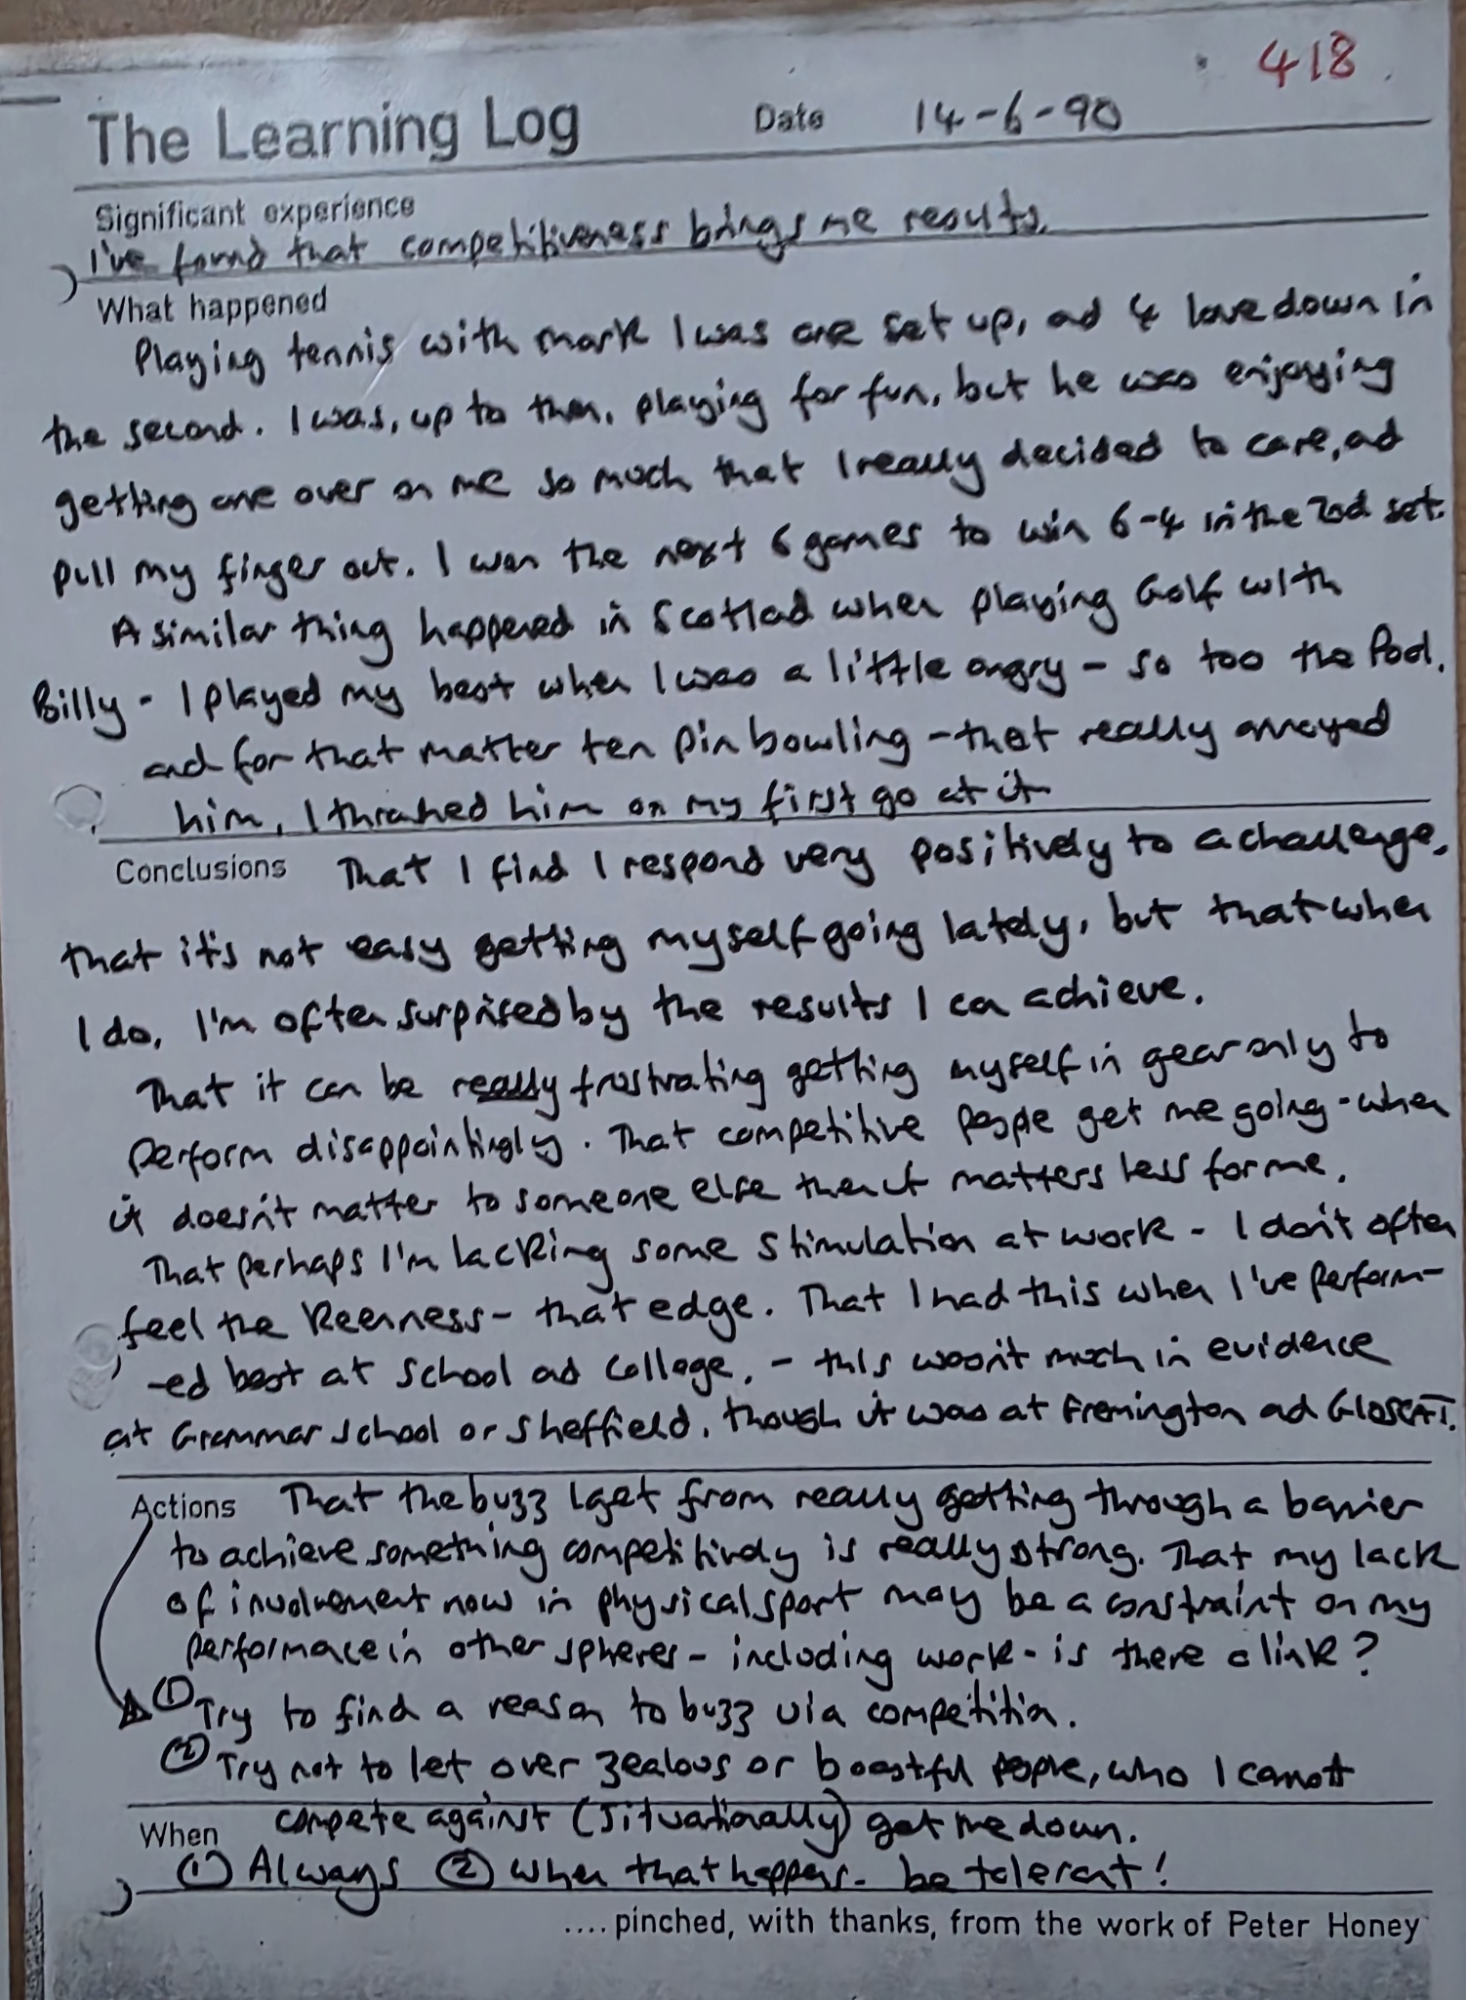 418
The Learning Log Date 14-6-90
Significant experience
I've found that competitiveness brings me results.
What happened
Playing tennis with mark I was one set up, ad 4 love down in
the second. I was, up to then, playing for fun, but he was enjoying
getting one over on me so much that I really decided to care, ad
pull my finger out. I won the next 6 games to win 6-4 in the 2nd set.
A similar thing happened in Scotlad when playing Golf with
Billy - I played my best when I was a little angry - so too the Pool,
and for that matter ten pin bowling - that really annoyed
him, I thrashed him on my first go at it
Conclusions That I find I respond very positively to a challenge,
that it's not easy getting myself going lately, but that when
I do, I'm often surprised by the results I ca achieve.
That it can be really frustrating getting myself in gear only to
perform disappointingly. That competitive people get me going - when
it doesn't matter to someone else then it matters less for me.
That perhaps I'm lacking some stimulation at work - I don't often
feel the keenness - that edge. That I had this when I've perform-
-ed best at school ad college, - this wasn't much in evidence
at Grammar school or Sheffield, though it was at Fremington ad GlosCAT.
Actions That the buzz I get from really getting through a barrier
to achieve something competitively is really strong. That my lack
of involvement now in physical sport may be a constraint on my
performace in other spheres - including work - is there a link?
① Try to find a reason to buzz via competition.
② Try not to let over zealous or boastful people, who I cannot
compete against (situationally) get me down.
When
① Always ② when that happens - be tolerant!
.... pinched, with thanks, from the work of Peter Honey